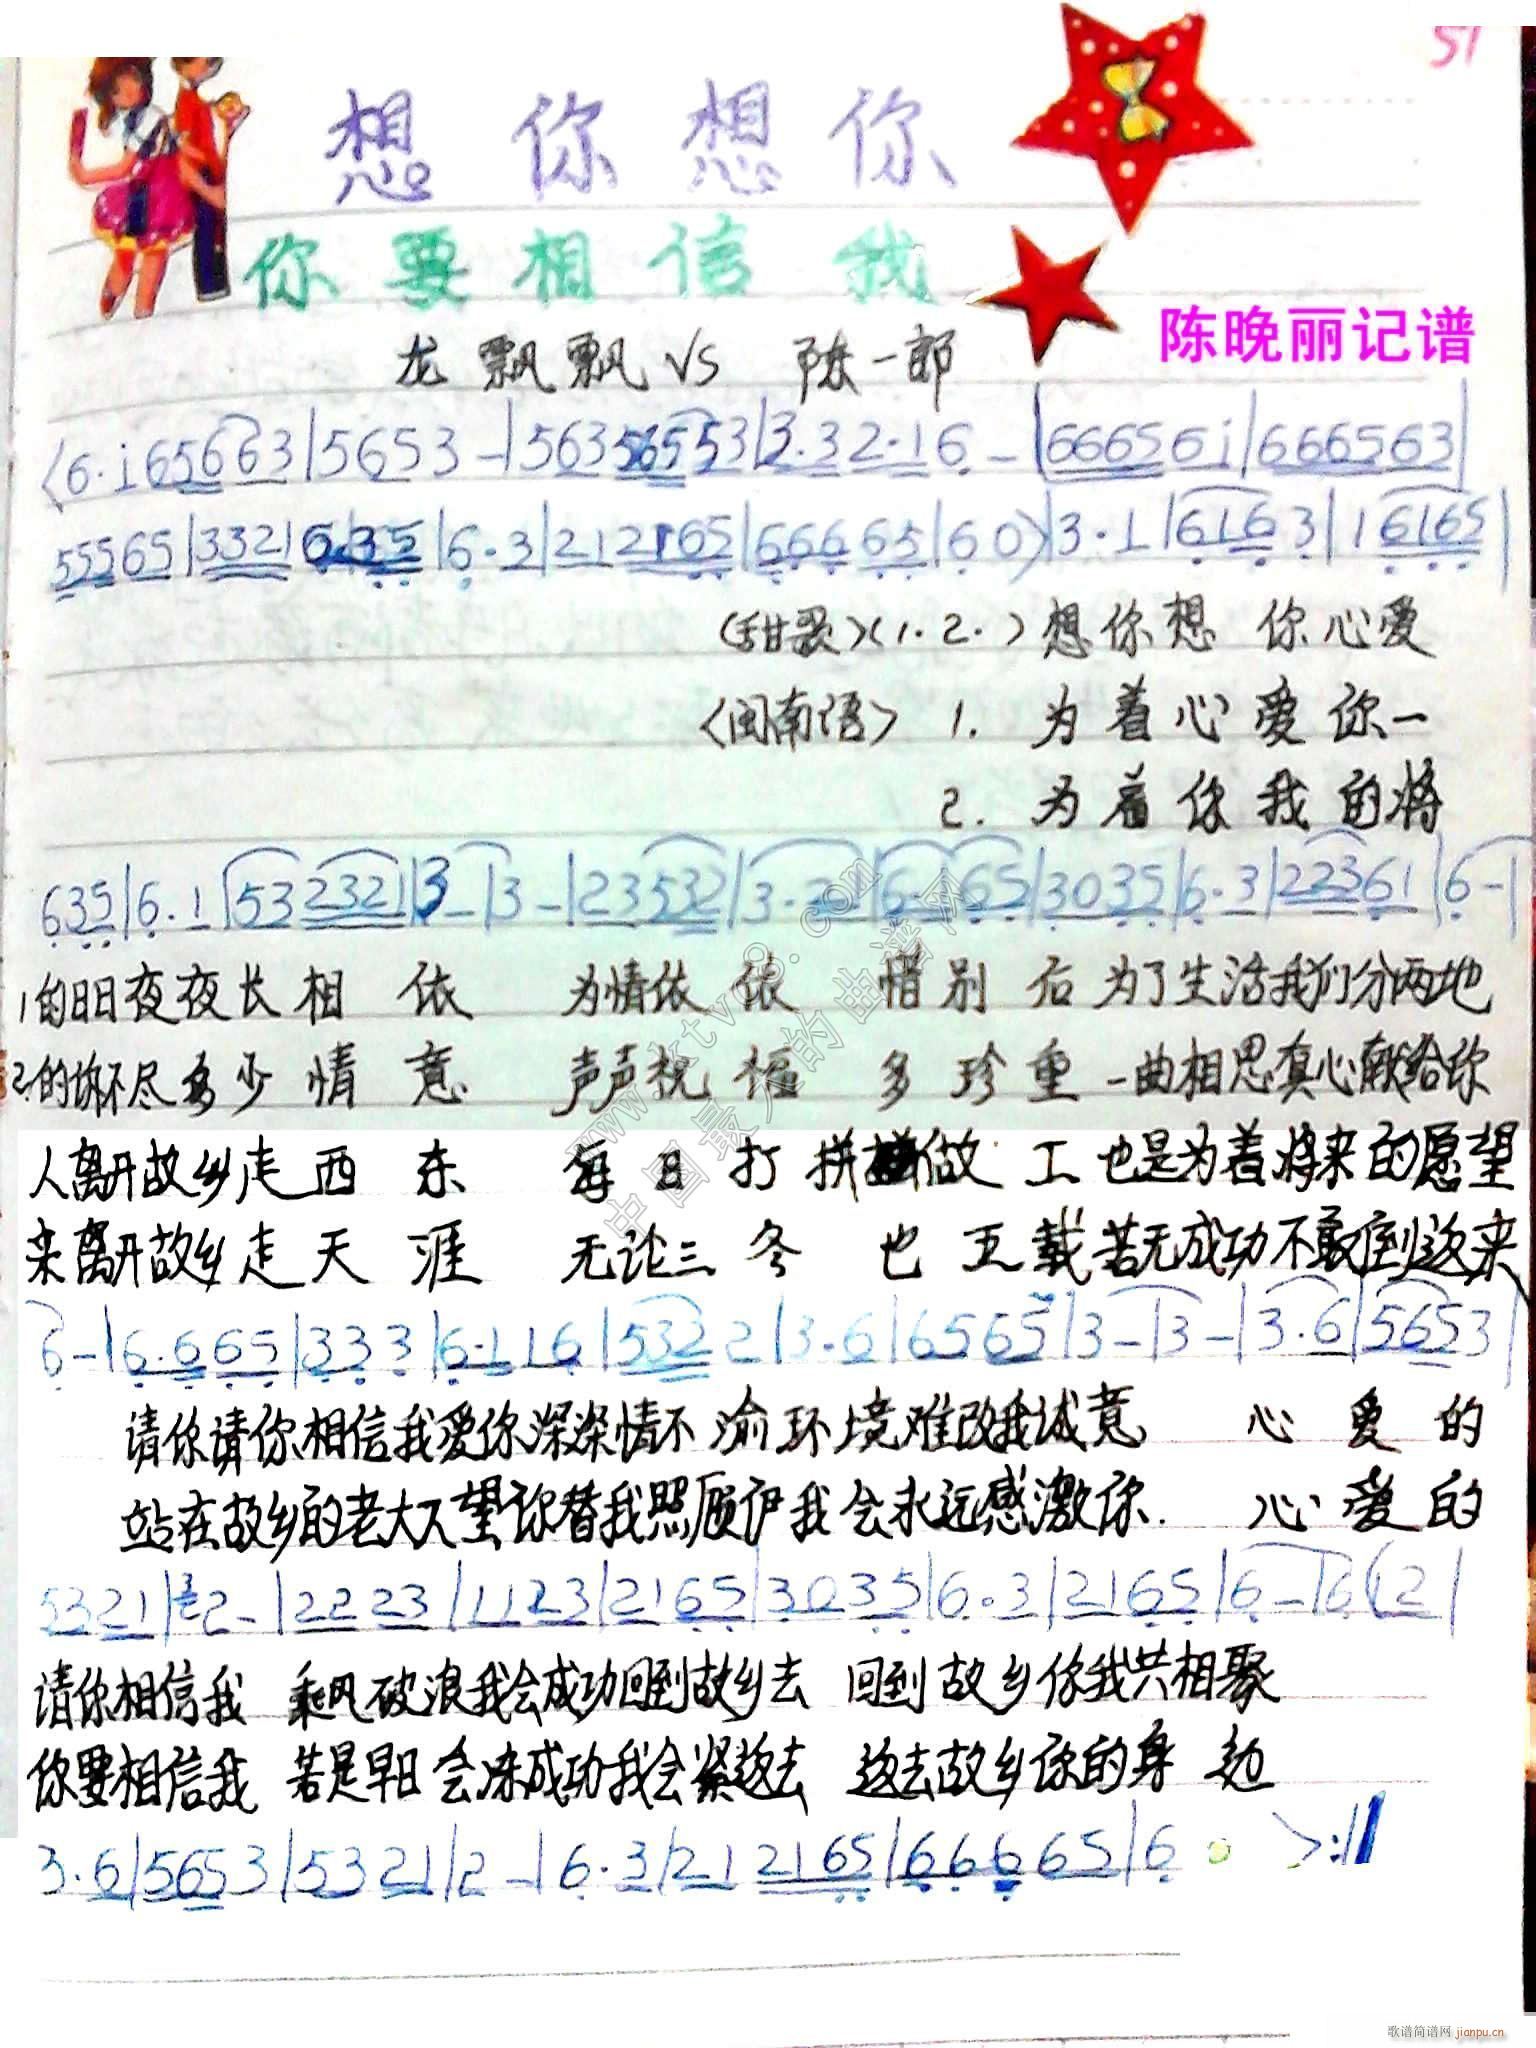 51
想你想你
你要相信我
陈晚丽记谱
龙飘飘 VS 陈一郎
<6·i65663|5653-|563565553|3·32·16-|6665 6i|666563|
55565|3321 6·35|6·3|21 2165|66665|60>|3·1|6163|16165|
(甜歌)(1.2.)想你想 你心爱
<闽南语> 1. 为着心爱你一
2. 为着你我的将
635|6·1|532321|3-|3-|23532|3·2|6·65|3035|6·3|22361|6-|
1的日日夜夜长相依 为情依依 惜别后为了生活我们分两地
2.的 不尽多少情意 声声祝福 多珍重一曲相思真心献给你
人离开故乡走西东 每日打拼 做工也是为着将来的愿望
来离开故乡走天涯 无论三冬也五载若无成功不敢倒返来
6-|6·665|333|6·116|5322|3·6|6565|3-|3-|3·6|5653|
请你请你相信我爱你深深情不渝环境难改我诚意 心爱的
站在故乡的老大人望你替我照顾伊我会永远感激你. 心爱的
5321|32-|2223|1123|2165|3035|6·3|2165|6-|6(12|
请你相信我 乘风破浪我会成功回到故乡去 回到故乡你我共相聚
你要相信我 若是早日会 成功我会紧返去 返去故乡你的身边
3·6|5653|5321|2-|6·3|21 2165|66665|6· >:||
www.ktvc8.com
中国最大的曲谱网
歌谱简谱网 jianpu.cn